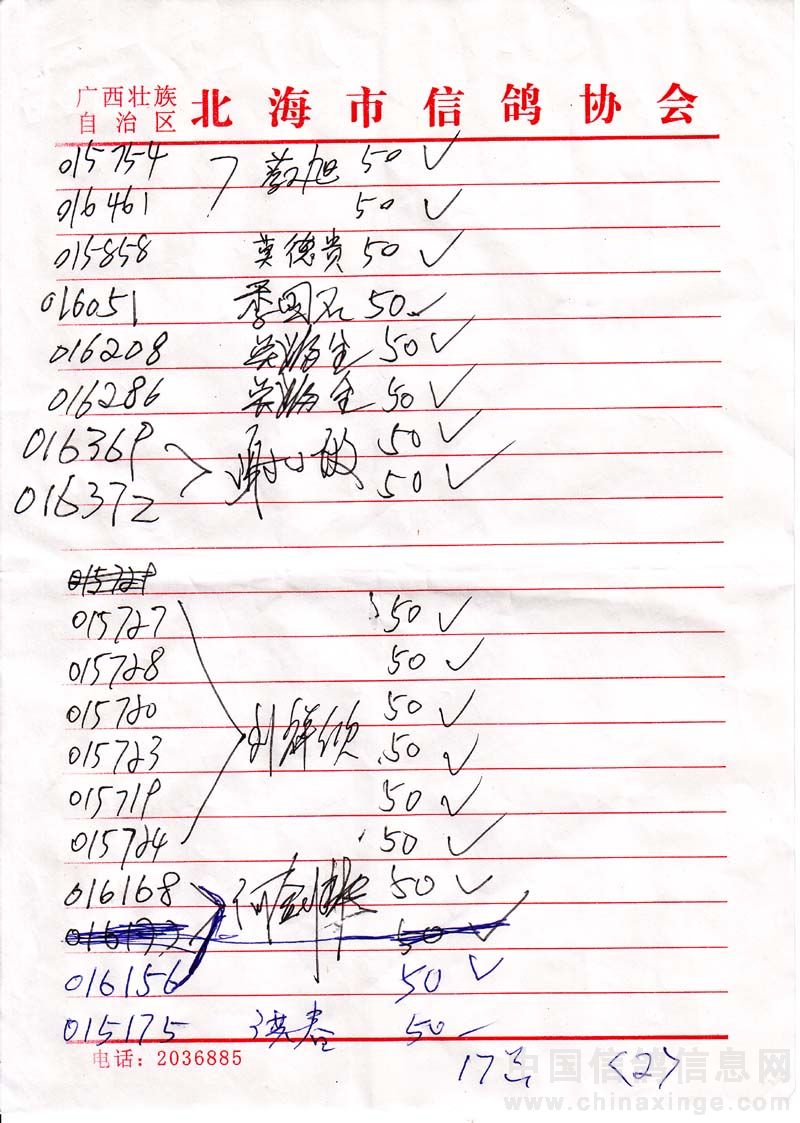 广西壮族
自治区 北海市信鸽协会
015754 蔡旭 50 ✓
016461 50 ✓
015858 莫德贵 50 ✓
016051 李国石 50 ✓
016208 生 50 ✓
016286 生 50 ✓
016369 50 ✓
016372 谢 敏 50 ✓
015727 50 ✓
015728 50 ✓
015720 50 ✓
015723 刘 50 ✓
015719 50 ✓
015724 50 ✓
016168 何 50 ✓
50 ✓
016156 50 ✓
015175 洪春 50
电话：2036885
17 <2>
中国信鸽信息网
www.chinaxinge.com